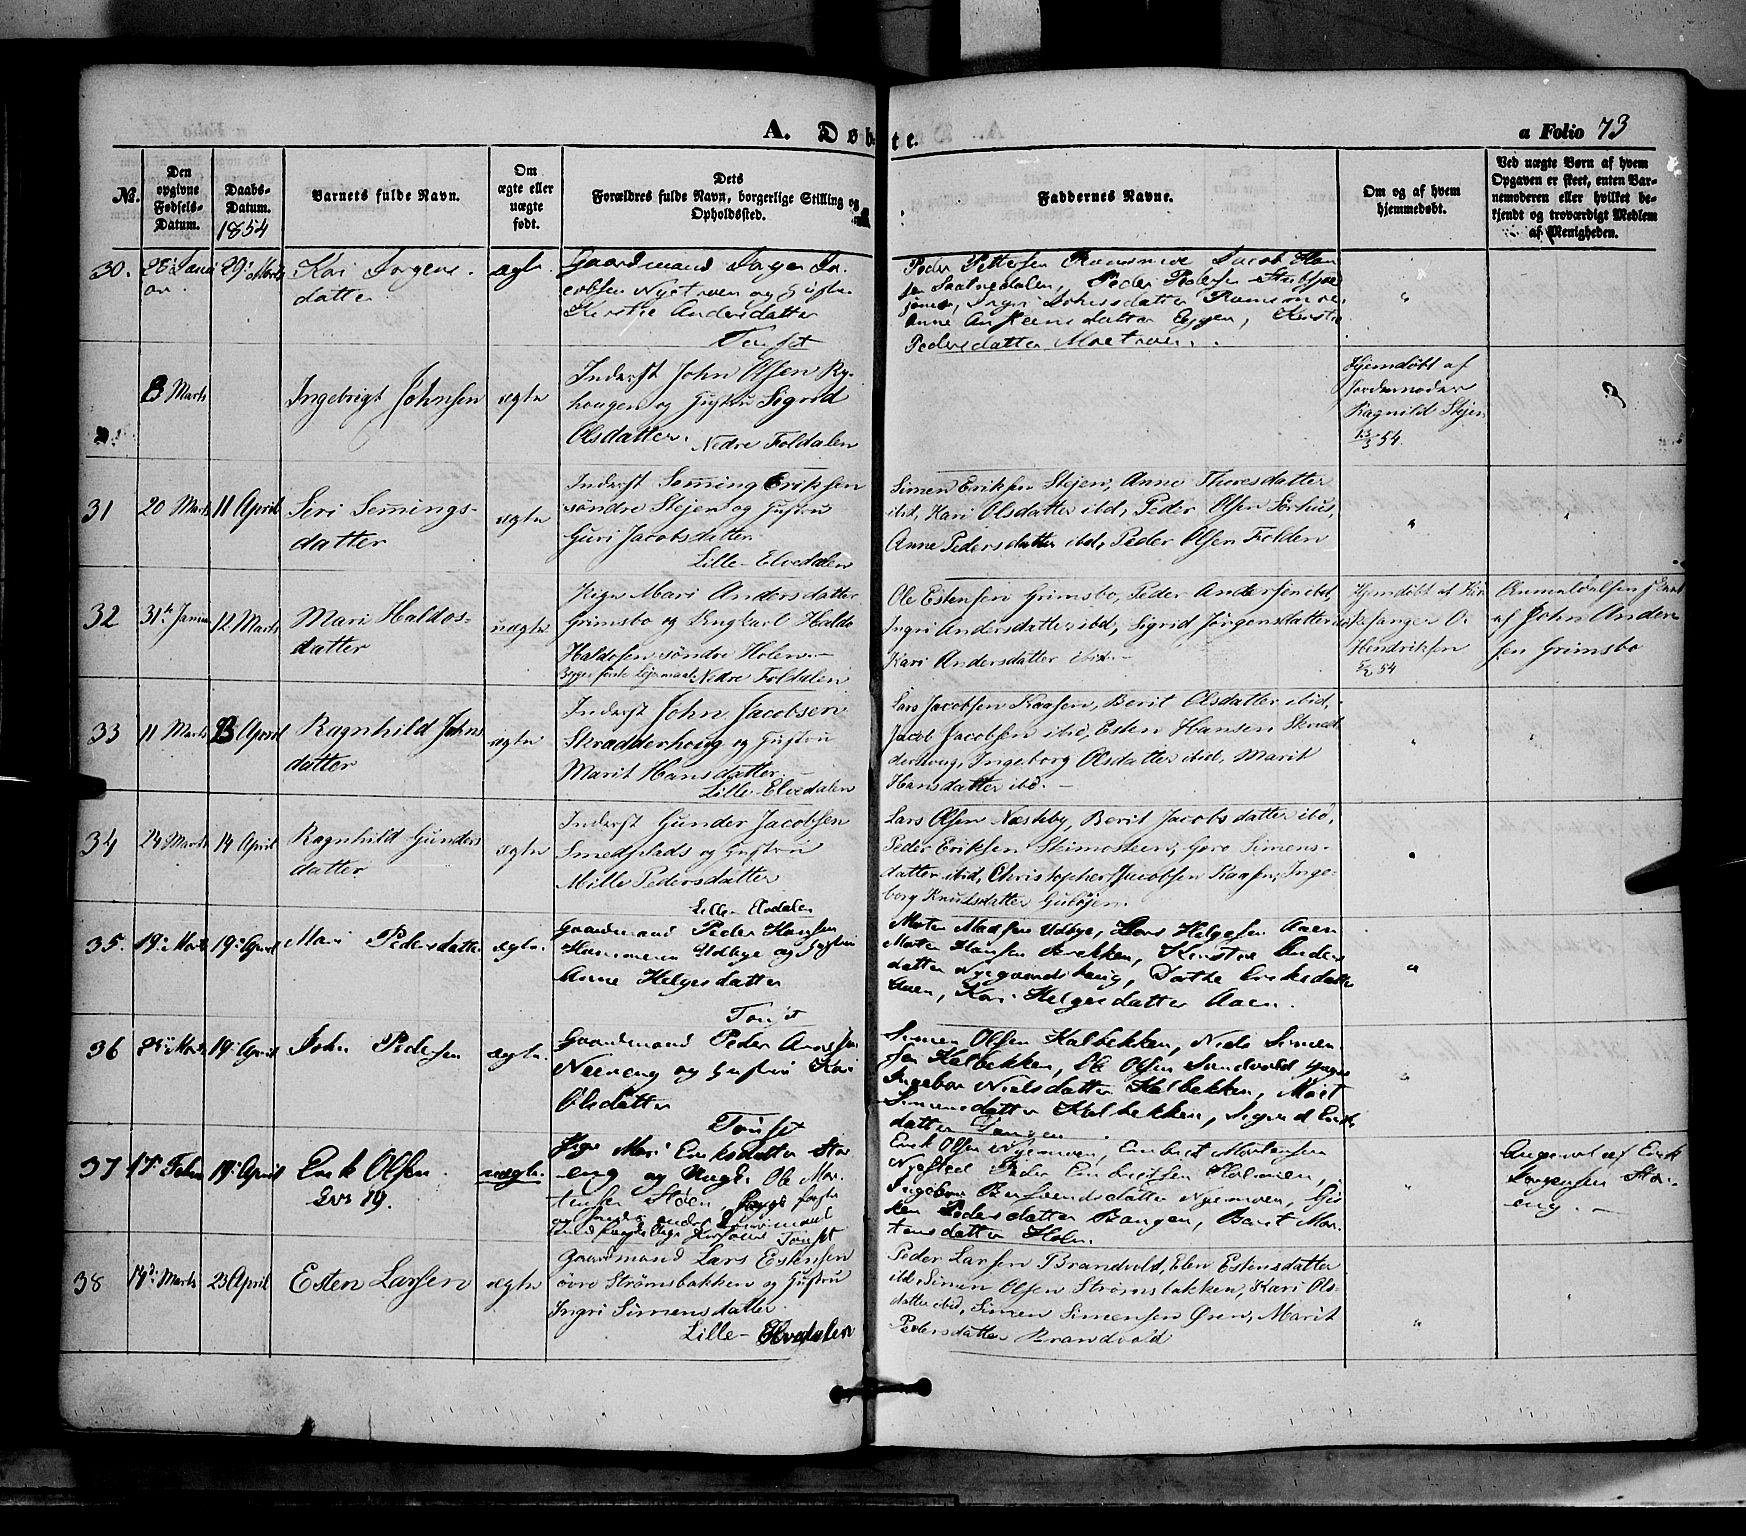 A. Døbte.
a Folio 73
No.
Den opgivne Fødsels-Datum.
Daabs-Datum. 1854
Barnets fulde Navn.
Om ægte eller uægte født.
Dets Forældres fulde Navn, borgerlige Stilling og Opholdssted.
Faddernes Navne.
Om og af hvem hjemmedøbt.
Ved uægte Børn af hvem Opgaven er skeet, enten Barnemoderen eller hvilket bekjendt og troværdigt Medlem af Menigheden.
30.
29 Marts
Kari Jørgens-
datter
ægte
Gaardmand Jørgen Ja-
cobsen Nyetroen og Hustru
Kirstie Andersdatter
Tønset
Peder Pettersen Jacob Han-
sen Peder Pedersen
Ingri
Anne Eggen, Kirstie
Pedersdatter Moetroen.
8 Marts
Ingebrigt Johnsen
ægte
Inderst John Olsen Ry-
hougen og Hustru Sigrid
Olsdatter. Nedre Foldalen
Hjemdøbt af
Jordemoder
Ragnild Stejen
13/3 54.
31
20 Marts
11 April
Siri Semings-
datter
ægte
Inderst Seming Eriksen
søndre Stejen og Hustru
Guri Jacobsdatter
Lille-Elvedalen
Simen Eriksen Stejen, Anne Thoresdatter
ibid, Kari Olsdatter ibd, Peder Olsen Sørhus,
Anne Pedersdatter ibd, Peder Olsen Folden
32
31te Januar
12 Marts
Mari Haldos-
datter
uægte
Pige Mari Andersdatter
Grimsbo og Ungkarl Haldo
Haldosen søndre Holen.
Begges første Leiermaal Nedre Foldalen
Ole Estensen Grimsbo, Peder Andersen ibd
Ingri Andersdatter ibd, Sigrid Jørgensdatter ibd
Kari Andersdatter ibid.
Hjemdøbt af Kir-
kesanger O.
Hendriksen
5/2 54
Anmeldelsen skeet
af John Ander-
sen Grimsbo
33
11 Marts
13 April
Ragnhild Johns
datter
ægte
Inderst John Jacobsen
Skradderhoug og Hustru
Marit Hansdatter.
Lille-Elvedalen
Lars Jacobsen Kaasen, Berit Olsdatter ibid,
Jacob Jacobsen ibid, Esten Hansen Skrad-
derhoug, Ingeborg Olsdatter ibid, Marit
Hansdatter ibd.
34
24 Marts
14 April
Ragnhild Gunders
datter
ægte
Inderst Gunder Jacobsen
Smedplads og Hustru
Mille Pedersdatter
Lille-Elvdalen
Lars Olsen Næsteby, Berit Jacobsdatter ibd,
Peder Eriksen Steimosteen, Goro Simens-
datter ibid, Christopher Jacobsen Kaasen, Inge-
borg Knudsdatter
35.
19 Marts
19 April
Mari Pedersdatter
ægte.
Gaardmand Peder Hansen
Udbye og Hustru
Anne Helgesdatter
Tønset
Morten Madsen Udbye, Lars Helgesen Aaen
Morten Hansen Brekken, Kirstie Anders
datter Nyegaardshoug, Dorthe Eriksdatter
Aaen, Kari Helgesdatter Aaen.
36
Marts
19 April
John Pedersen
ægte.
Gaardmand Peder
Neereng og Hustru Kari
Olsdatter
Tønset
Simen Olsen Kalbekken, Niels Simen-
sen Kalbekken, Ole Olsen Sandvold yngre
Ingebor Nielsdatter Kalbekken, Marit
Simensdatter Kalbekken, Sigrid
datter
37
15 Febr
19 April
Erik Olsen
Lvs 19.
uægte.
Pige Mari Eriksdatter Stor-
eng og Ungk. Ole Mor-
tensen Støen
Tønset
Erik Olsen Nyemoen, Embret Mortensen
Nysted, Peder Embretsen Holmen,
Ingebor Nyemoen,
Pedersdatter Bangen, Berit Mor-
tensdatter Holm.
Angivet af Erik
Jørgensen Stor-
eng.
38
14de Marts
23 April
Esten Larsen
ægte
Gaardmand Lars Estensen
øvre Strømsbakken og Hustru
Ingri Simensdatter
Lille-Elvedalen
Peder Larsen Brandvold, Elen Estensdatter
ibd, Simen Olsen Strømsbakken, Kari Ols-
datter ibid, Simen Simensen Øren, Marit
Pedersdatter Brandvold